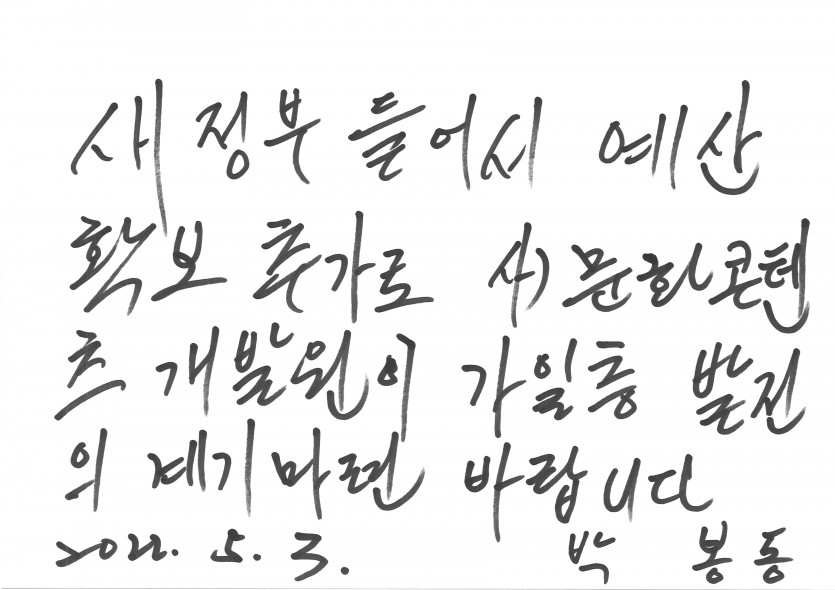 새정부 들어서 예산
확보 추가로 사)문화콘텐
츠 개발원이 가일층 발전
의 계기마련 바랍니다
2022. 5. 3. 박 봉동